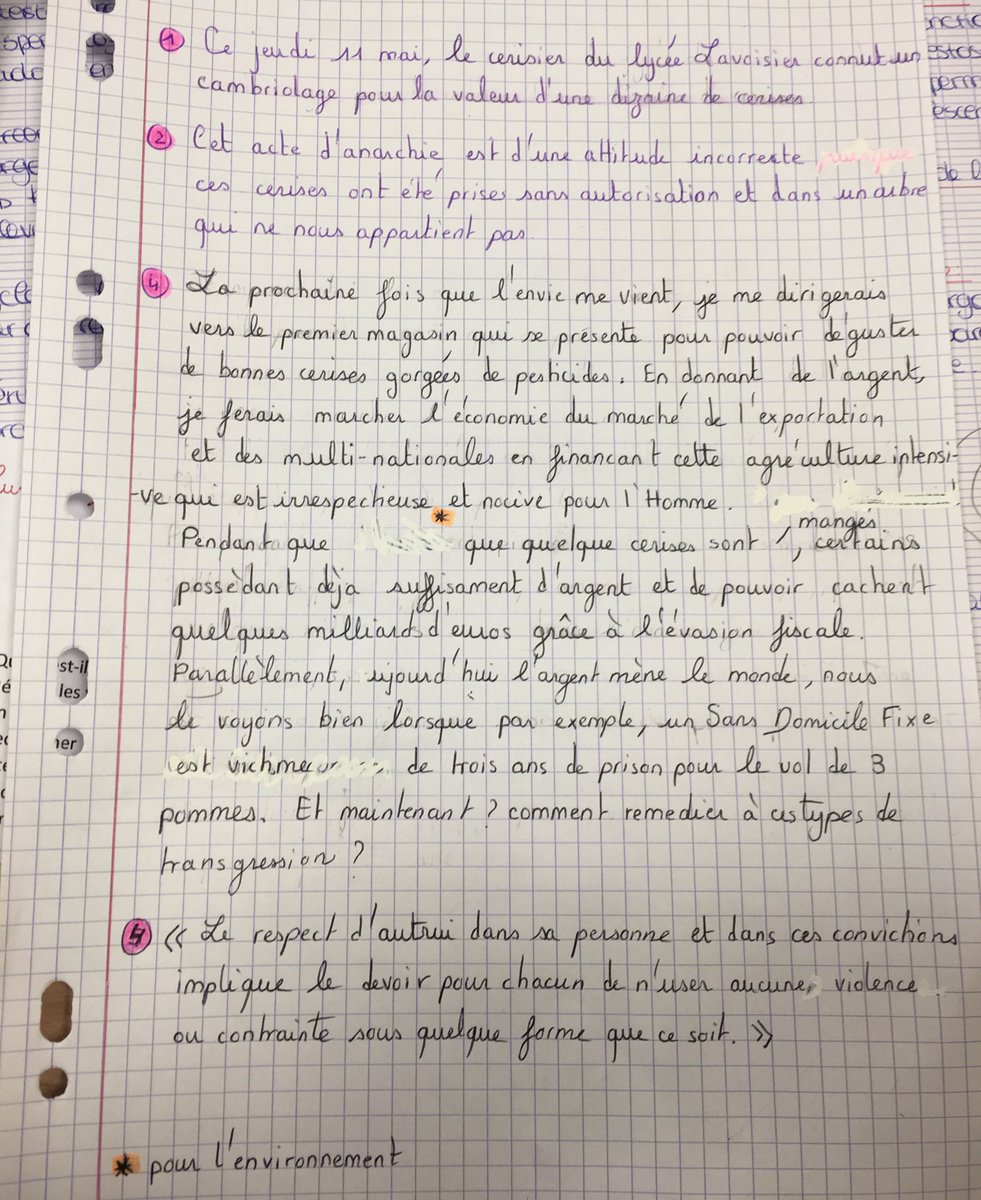 1 Ce jeudi 11 mai, le cerisier du lycée Lavoisier connut un
cambriolage pour la valeur d'une dizaine de cerises
2 Cet acte d'anarchie est d'une attitude incorrecte
ces cerises ont été prises sans autorisation et dans un arbre
qui ne nous appartient pas.
4 La prochaine fois que l'envie me vient, je me dirigerais
vers le premier magasin qui se présente pour pouvoir déguster
de bonnes cerises gorgées de pesticides. En donnant de l'argent,
je ferais marcher l'économie du marché de l'exportation
et des multi-nationales en financant cette agréculture intensi-
-ve qui est irrespectieuse * et nocive pour l'Homme.
mangés
Pendant que que quelque cerises sont /, certains
possèdant dèja suffisament d'argent et de pouvoir cachent
quelques milliards d'euros grâce à l'évasion fiscale.
Parallèlement, ujourd'hui l'argent mène le monde, nous
le voyons bien lorsque par exemple, un Sans Domicile Fixe
est victime de trois ans de prison pour le vol de 3
pommes. Et maintenant ? comment remedier à ces types de
transgression ?
5 « Le respect d'autrui dans sa personne et dans ces convictions
implique le devoir pour chacun de n'user aucune violence
ou contrainte sous quelque forme que ce soit. »
* pour l'environnement
st-il
les